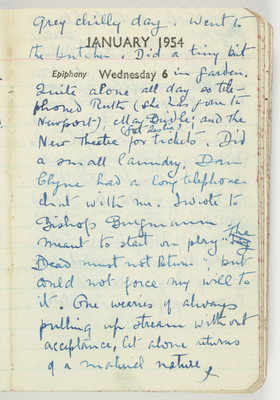 Grey chilly day. Went to
the butcher. Did a tiny bit
JANUARY 1954
Epiphany Wednesday 6 in garden.
Quite alone all day so tele-
phoned Ruth (she has gone to
Newport), May Brodie, and the
(got Leslie)
New Theatre for tickets. Did
a small laundry. Dora
had a long telephone
chat with me. I wrote to
Bishop Burgmann.
Meant to start on play "The
Dead must not Return", but
could not force my will to
it. One wearies of always
pulling up stream without
acceptance, let alone returns
of a material nature